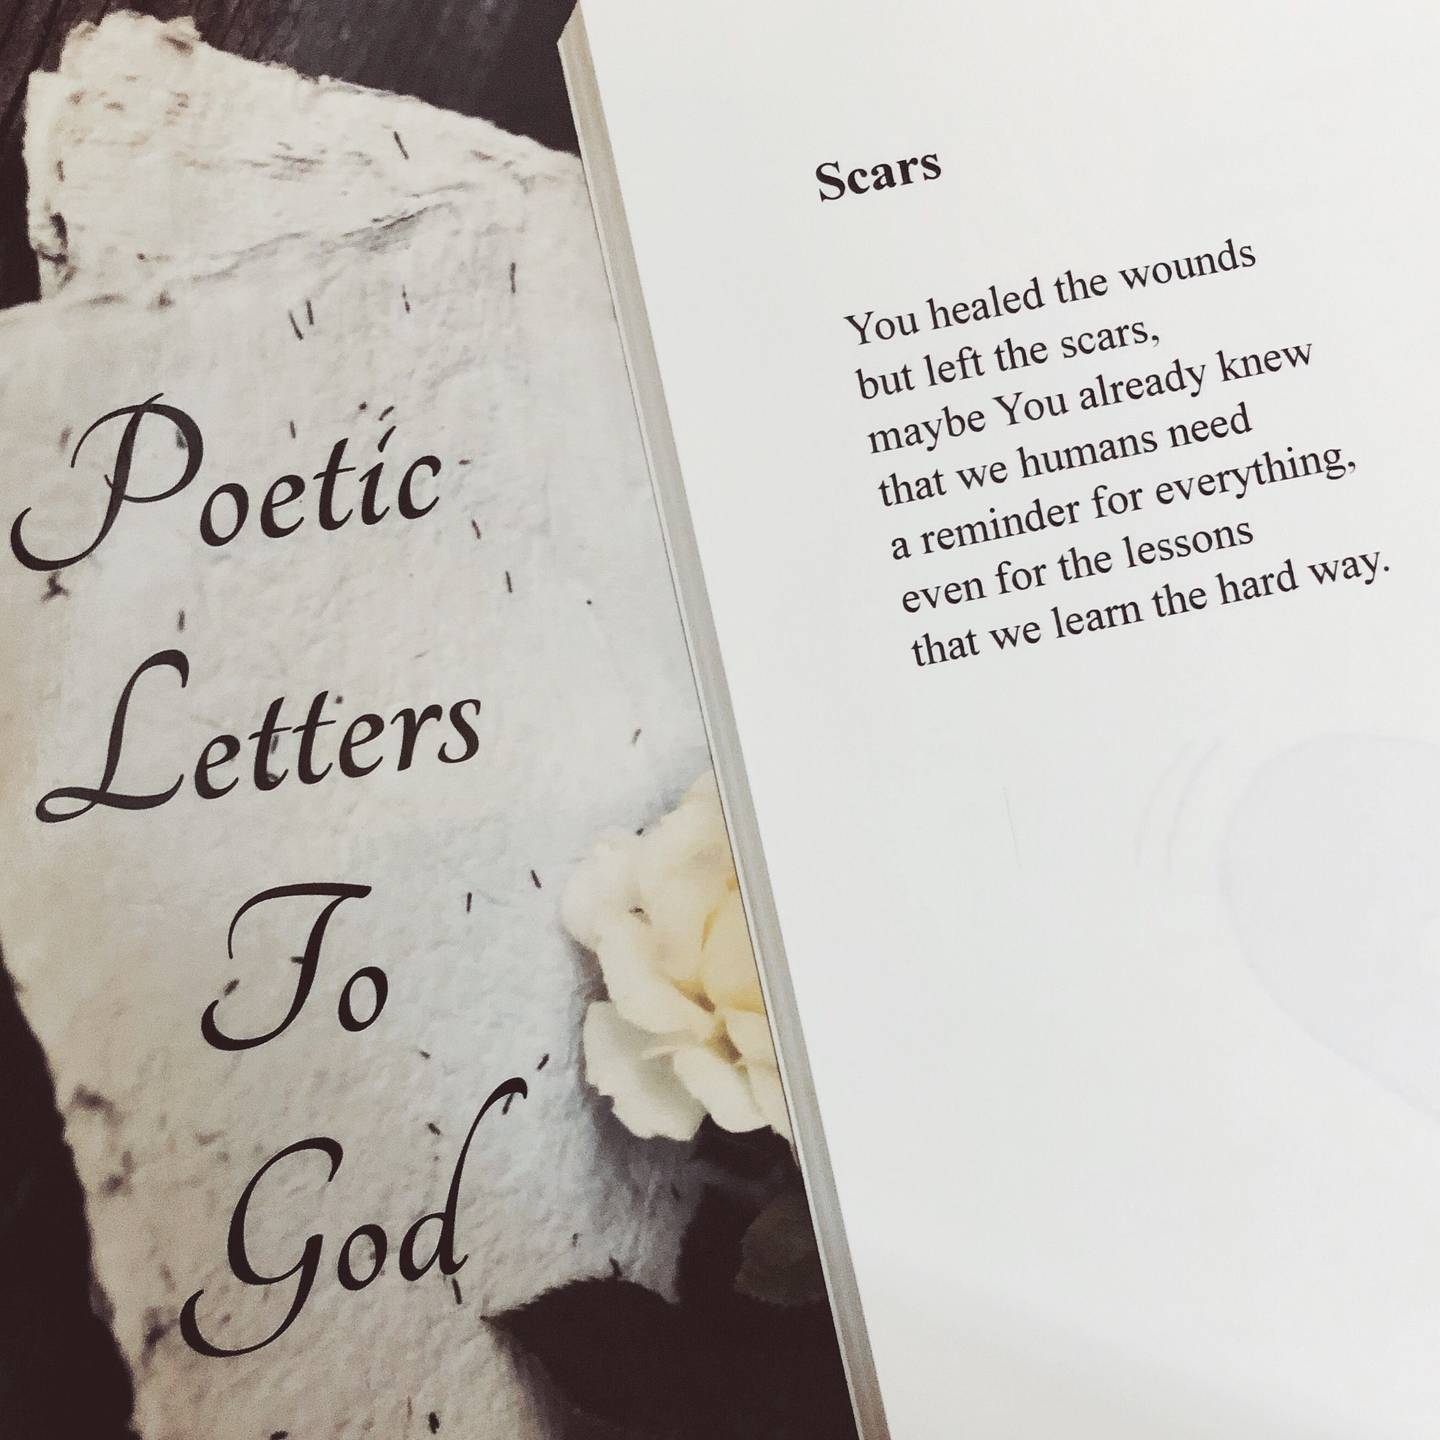 Poetic
Letters
To
God
Scars
You healed the wounds
but left the scars,
maybe You already knew
that we humans need
a reminder for everything,
even for the lessons
that we learn the hard way.